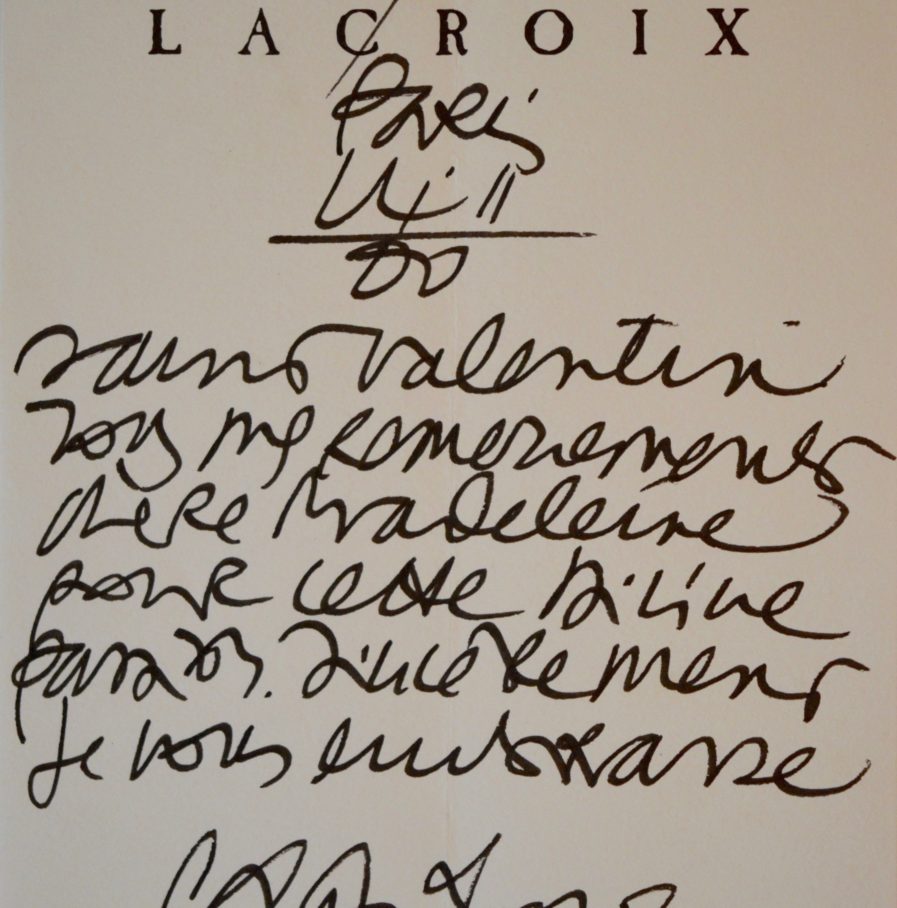 LACROIX
Paris
00
saint valentin
tous mes remerciements
chère Madeleine
pour cette
sincèrement
Je vous embrasse